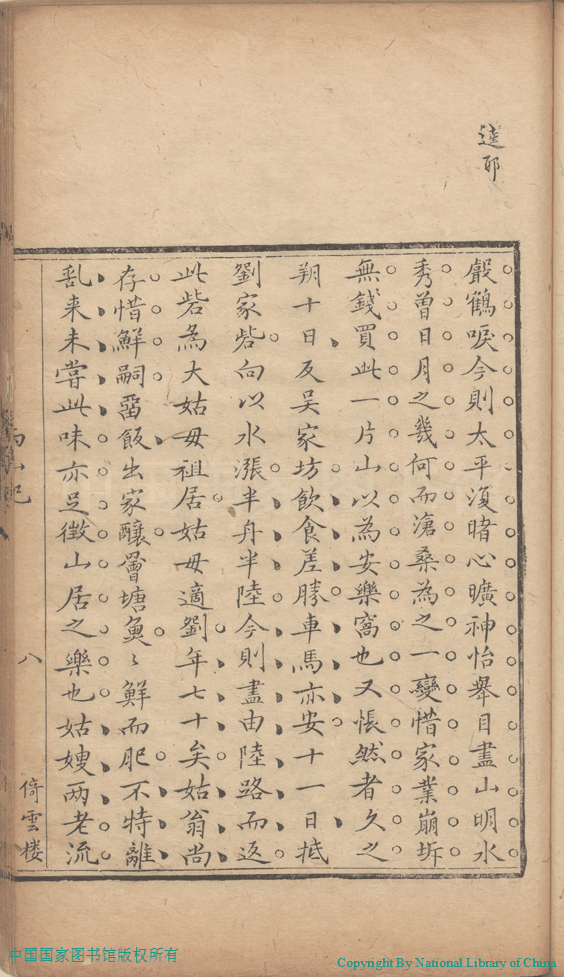 逵耶
嚴鶴唳今則太平復睹心曠神怡舉目盡山明水
秀曾日月之幾何而滄桑為之一變惜家業崩坼
無錢買此一片山以為安樂窩也又悵然者久之
朔十日反吴家坊飲食差勝車馬亦安十一日抵
劉家砦向以水漲半舟半陸今則盡由陸路而返
此砦為大姑母祖居姑母適劉年七十矣姑翁尚
存惜鮮嗣畱飯出家釀罾塘魚〻鮮而肥不特離
亂来未嘗此味亦足徵山居之樂也姑嫂兩老流
八
倚雲楼
中国国家图书馆版权所有
Copyright By National Library of China